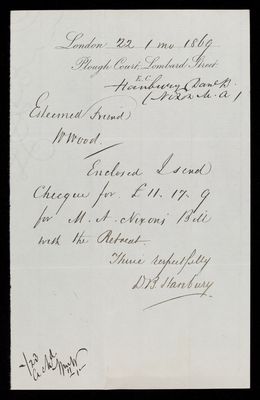 London 22 1 mo 1869
Plough Court, Lombard Street
E.C.
Hanbury Danl B.
(Nixon M. A)
Esteemed Friend
W Wood.
Enclosed I send
Cheque for £11. 17. 9
for M. A. Nixons Bill
with the Retreat.
Thine respectfully
D B Hanbury